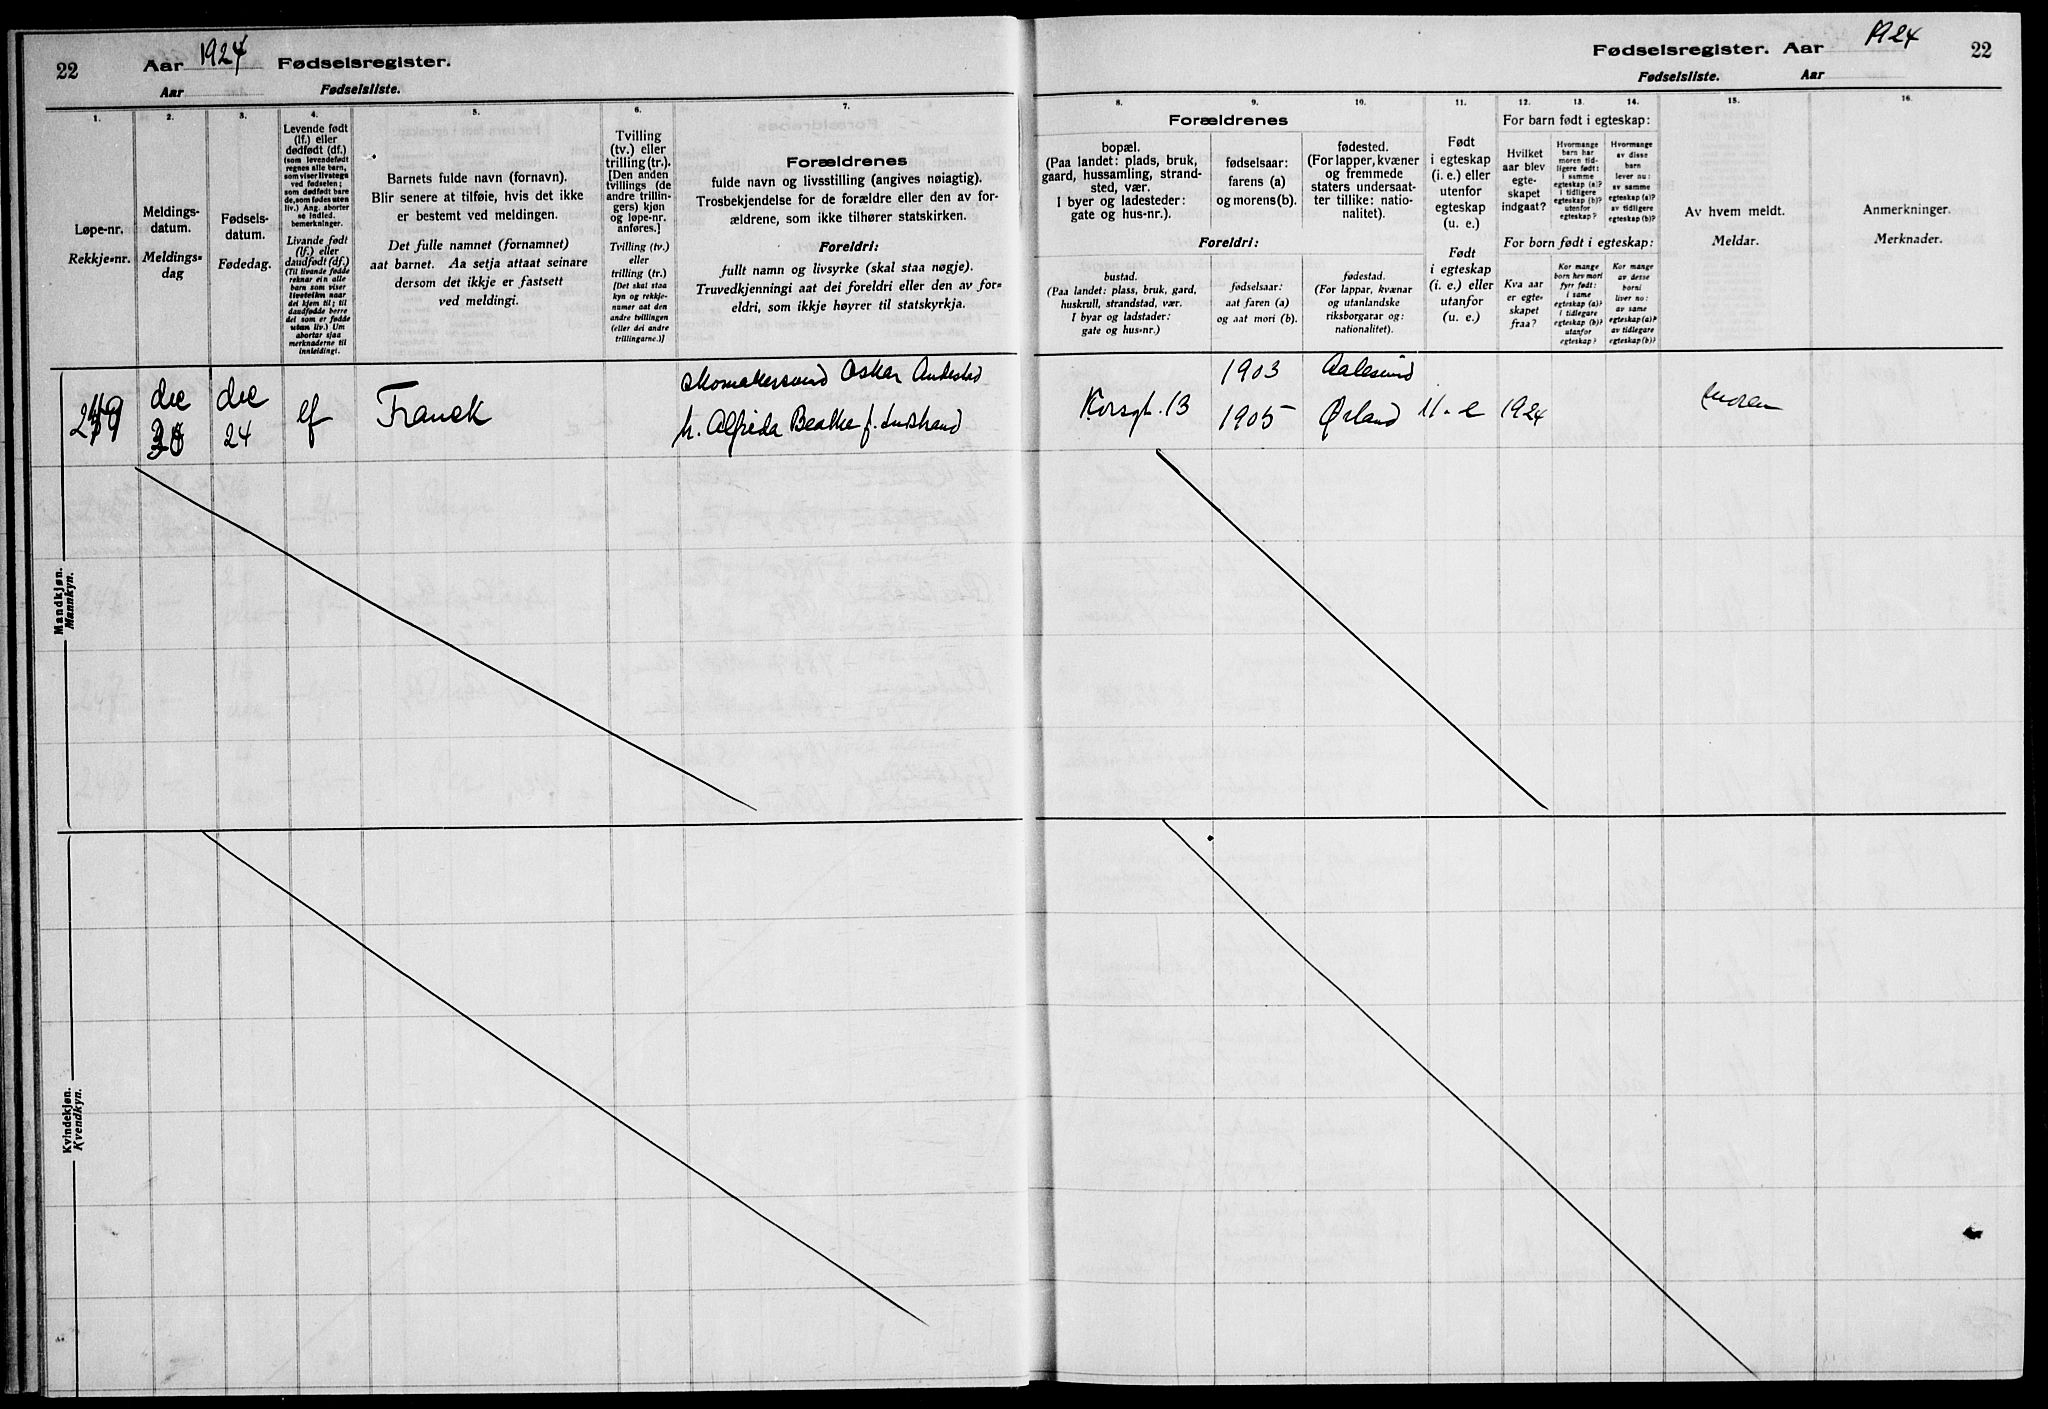 22 Aar 1924 Fødselsregister.
Aar Fødselsliste.
1.
Løpe-nr.
Rekkje-nr.
2.
Meldings-
datum.
Meldings-
dag
3.
Fødsels-
datum.
Fødedag.
4.
Levende født
(lf.) eller
dødfødt (df.)
(som levendefødt
regnes alle barn,
som viser livstegn
ved fødselen;
som dødfødt bare
de, som fødes uten
liv.) Ang. aborter
se indled.
bemerkninger.
Livande født
(lf.) eller
daudfødt (df.)
(Til livande fødde
reknar ein alle
barn som viser
livsteikn naar
dei kjem til; til
daudfødde berre
dei som er fødde
utan liv.) Um
abortar sjaa
merknaderne til
innleidingi.
5.
Barnets fulde navn (fornavn).
Blir senere at tilføie, hvis det ikke
er bestemt ved meldingen.
Det fulle namnet (fornamnet)
aat barnet. Aa setja attaat seinare
dersom det ikkje er fastsett
ved meldingi.
6.
Tvilling
(tv.) eller
trilling (tr.).
[Den anden
tvillings (de
andre trillin-
gers) kjøn
og løpe-nr.
anføres.]
Tvilling (tv.)
eller
trilling (tr.)
[Det skal staa
kyn og rekkje-
numer aat den
andre tvillingen
(eller dei andre
trillingarne.)]
7.
Forældrenes
fulde navn og livsstilling (angives nøiagtig).
Trosbekjendelse for de forældre eller den av for-
ældrene, som ikke tilhører statskirken.
Foreldri:
fullt namn og livsyrke (skal staa nøgje).
Truvedkjenningi aat dei foreldri eller den av for-
eldri, som ikkje høyrer til statskyrkja.
Mandkjøn.
Mannkyn.
249 dec 30 dec 24 lf Franck
Oskar
h. Alfrida Beathe f.
Kvindekjøn.
Kvendkyn.
Fødselsregister. Aar 1924 22
Fødselsliste. Aar
8.
Forældrenes
bopæl.
(Paa landet: plads, bruk,
gaard, hussamling, strand-
sted, vær.
I byer og ladesteder:
gate og hus-nr.).
Foreldri:
bustad.
(Paa landet: plass, bruk, gard,
huskrull, strandstad, vær.
I byar og ladstader:
gate og hus-nr.)
9.
fødselsaar:
farens (a)
og morens(b).
fødselsaar:
aat faren (a)
og aat mori (b).
10.
fødested.
(For lapper, kvæner
og fremmede
staters undersaat-
ter tillike: natio-
nalitet).
fødestad.
(For lappar, kvænar
og utanlandske
riksborgarar og:
nationalitet).
11.
Født
i egteskap
(i. e.) eller
utenfor
egteskap
(u. e.)
Født
i egteskap
(i. e.) eller
utanfor
(u. e.)
12.
For barn født i egteskap:
Hvilket
aar blev
egte-
skapet
indgaat?
For born født i egteskap:
Kva aar
er egte-
skapet
fraa?
13.
Hvormange
barn har
moren tid-
ligere født:
i samme
egteskap (a)?
i tidligere
egteskap (b)?
utenfor
egteskap?
Kor mange
born hev mori
fyrr født:
i same
egteskap (a)?
i tidlegare
egteskap (b)?
utanfor
egteskap?
14.
Hvormange
av disse
barn
lever nu:
av samme
egteskap (a)?
av tidligere
egteskap (b)?
Kor mange
av desse
borni
liver no:
av same
egteskap (a)?
av tidlegare
egteskap (b)?
15.
Av hvem meldt.
Meldar.
16.
Anmerkninger.
Merknader.
1903 Aalesund
Korsgt. 13 1905 Ørland i. e 1924 moren